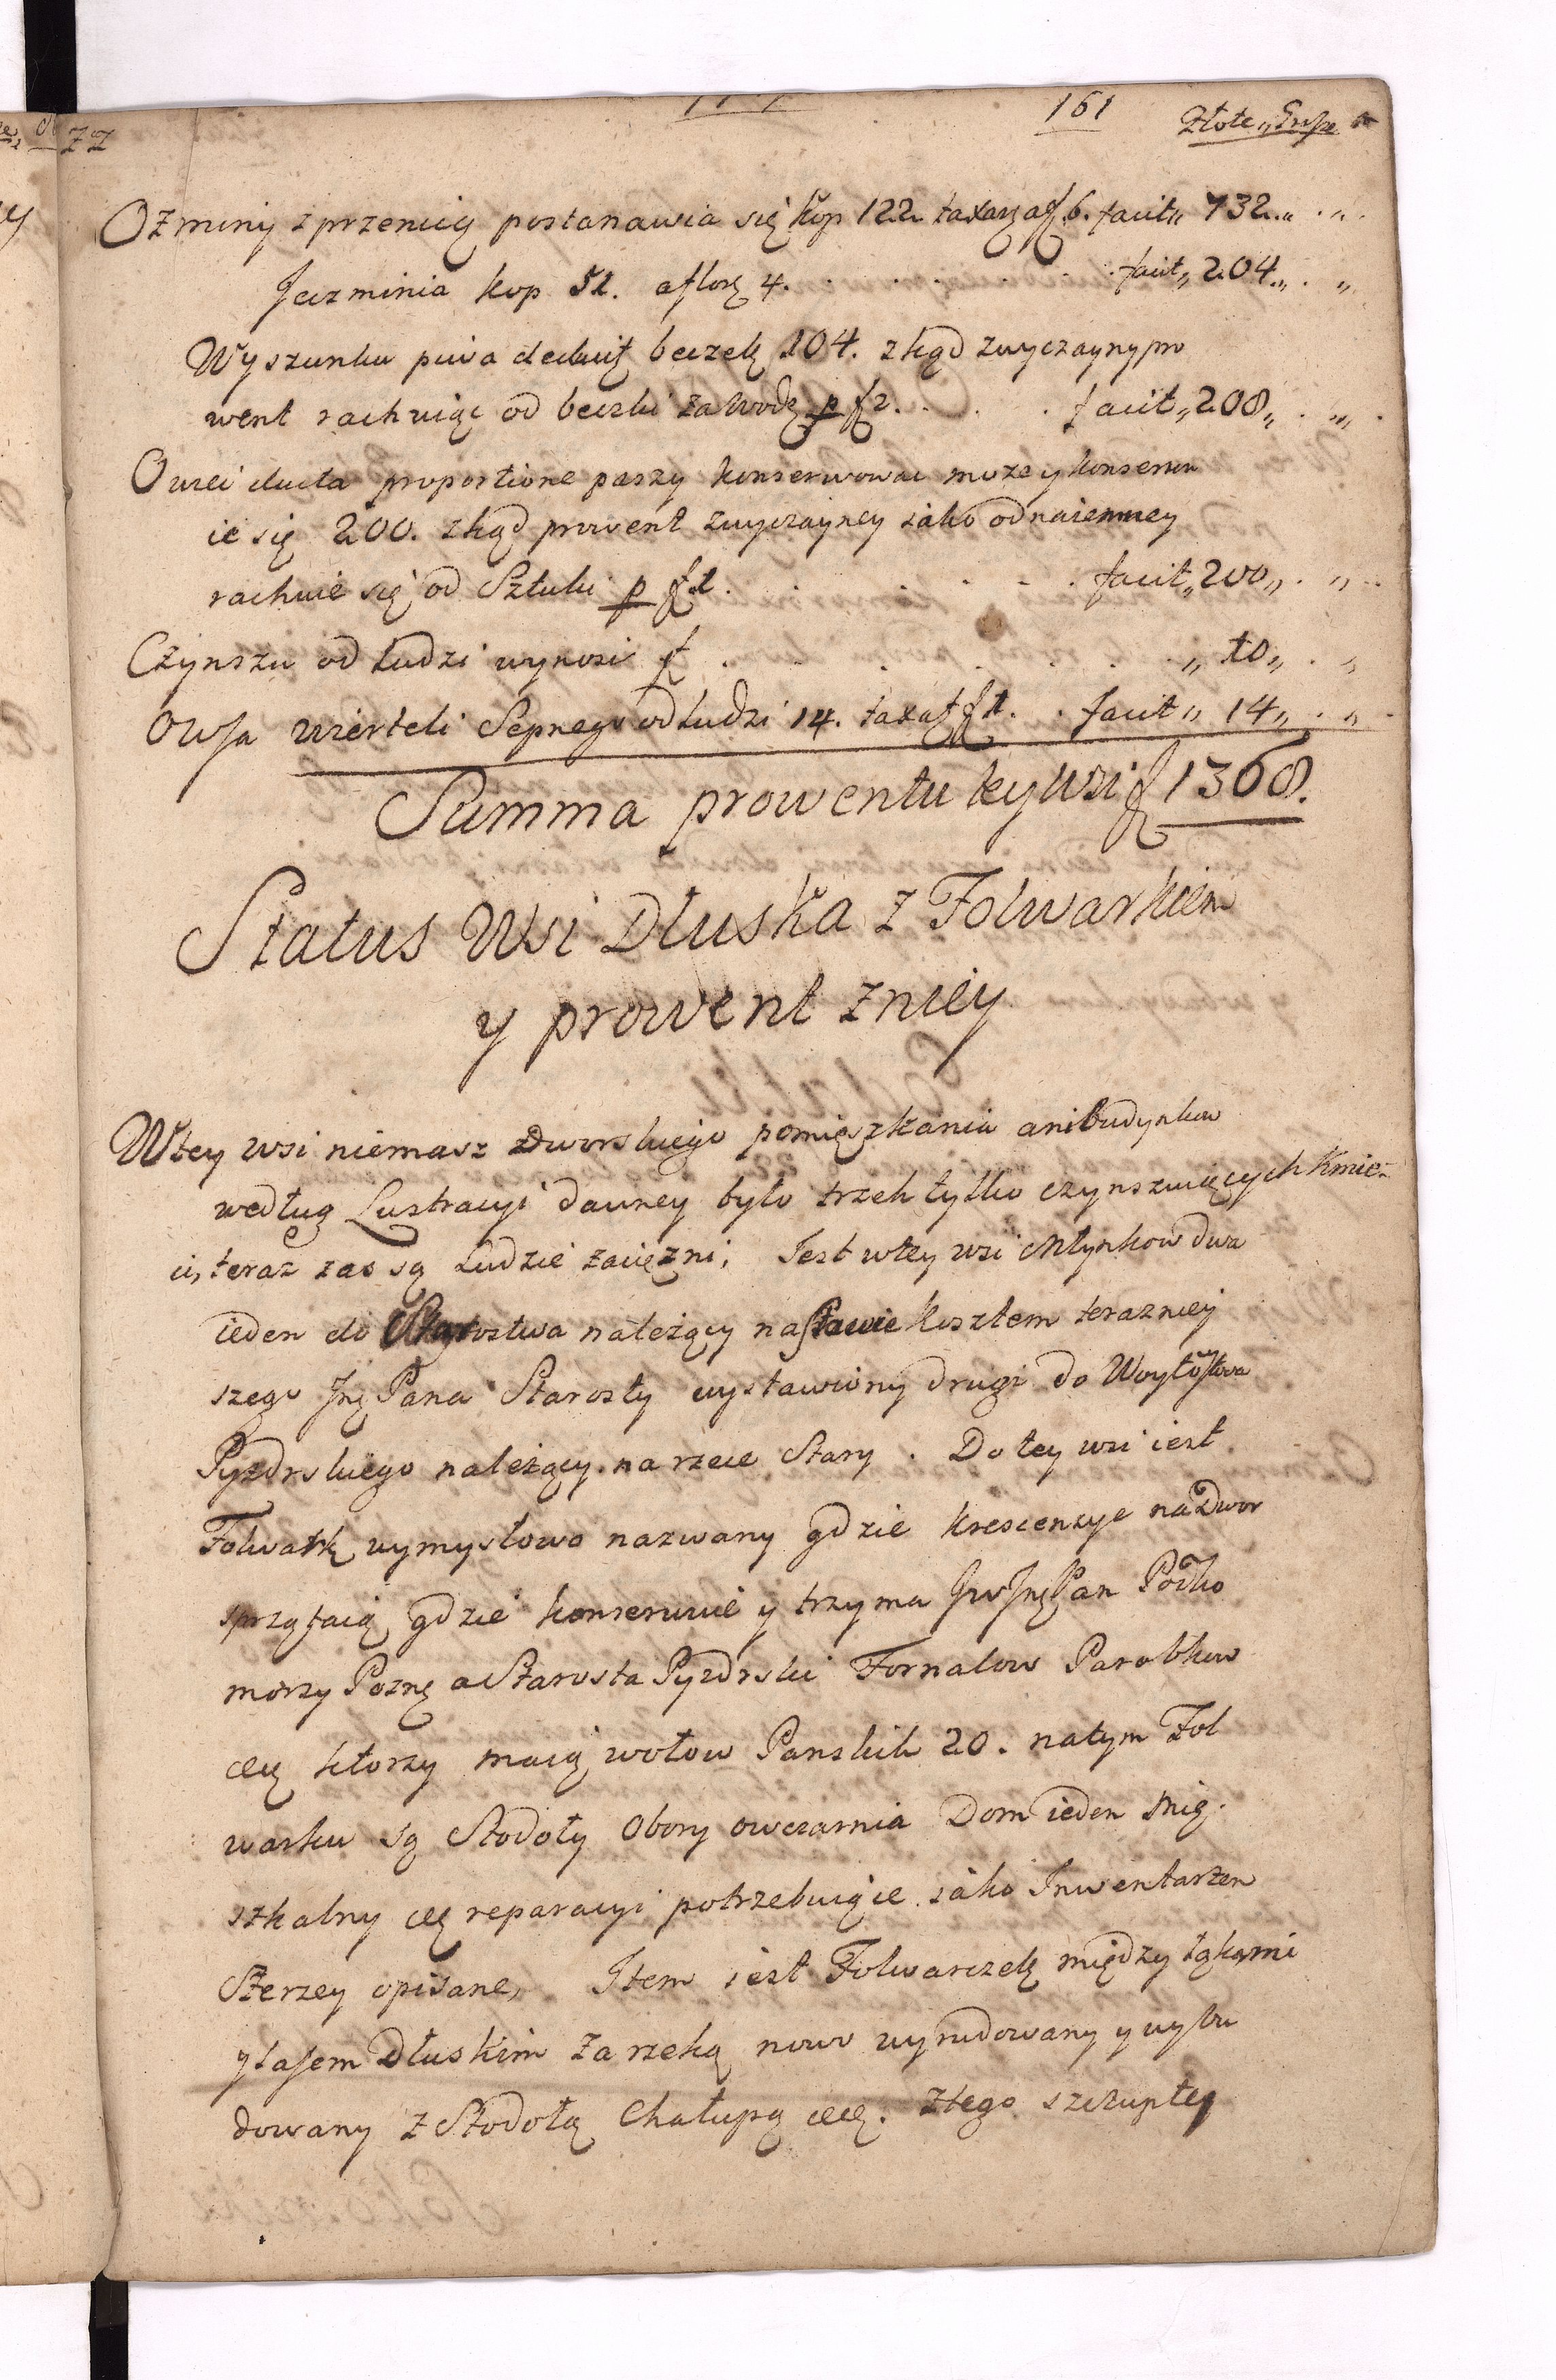 161
Złote „ Grosze
Oziminy z przenicą postanawia się kop 122. taxaq a f 6. facit „ 732 „ . „ .
Jęczminia kop 51. a florę 4. . . . . facit „ 204 „ . „
Wyszunku piwa deduit beczek 104. zkąd zwyczayny pro
went rachuiąc od beczki za wodę p f 2. . . . facit „ 208 „ . „ .
Owiec ducta proportione paszy konserwowac może y konserwu
ie się 200. zkąd prowent zwyczayney iako od naiemney
rachuie się od Sztuki p f 1. . . . facit „ 200 „ . „ .
Czynszu od Ludzi wynosi f . . . . . „ 10 „ . „
Owsa wierteli Sepnego od Ludzi 14. taxaq f 1. . facit „ 14 „ . „ .
Summa prowentu tey wsi f 1368.
Status Wsi Dłuska z Folwarkiem
y prowent zniey
Wtey wsi niemasz Dworskiego pomięszkania ani budynkow
według Lustracyi dawney było trzeh tylko czynszuiących Kmie-
ci, teraz zas są Ludzie zaciężni; Jest wtey wsi Młynkow dwa
ieden do Starostwa należący na stawie kosztem teraznieỳ
szego Jmę Pana Starosty wystawiony drugi do Woytostwa
Pyzdrskiego należący na rzece Stary . Do tey wsi iest
Folwark wymysłowo nazwany gdzie krescenzye na Dwor
sprzątaią gdzie konserwuie y trzyma Jw Jmę Pan Podko
morzy Pozną a Starosta Pyzdrski Fornalow Parobkow
etc ktorzy maią wołow Panskich 20. na tym Fol
warku są Stodoły Obory owczarnia Dom ieden mię
szkalny etc reparacyi potrzebuiące iako Inwentarzem
Szerzey opisane, Item iest Folwarczek między łąkami
y lasem Dłuskim za rzeką nowo wyrudowany y wybu
dowany z Stodołą Chałupą etc. Ztego szczupłey